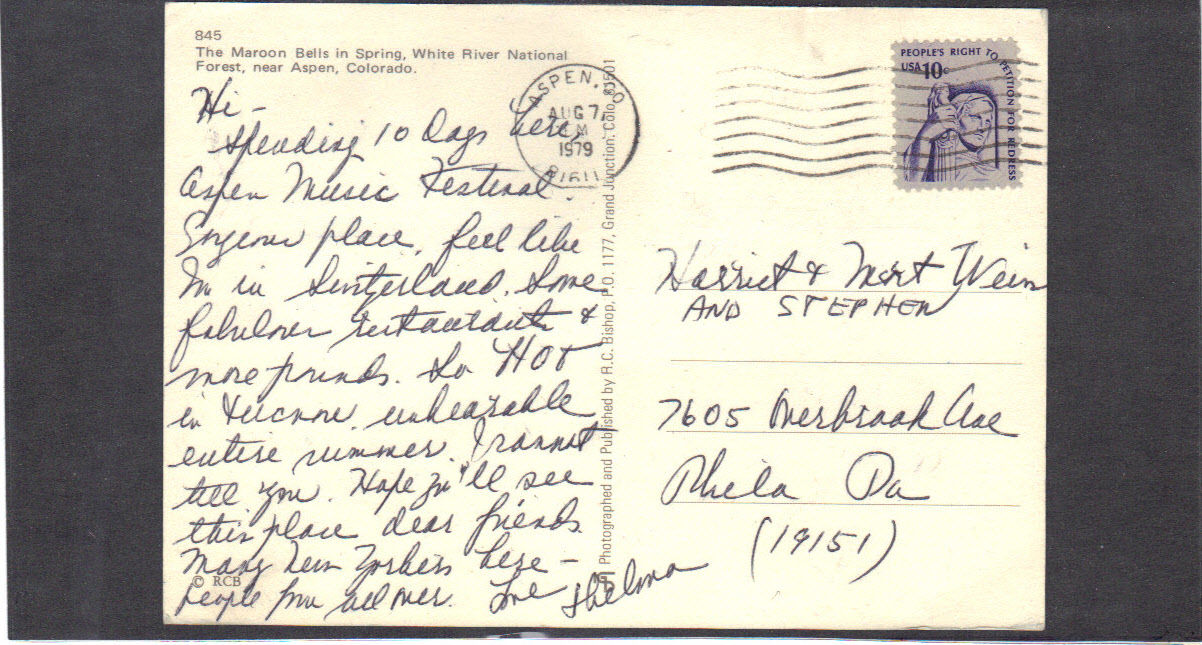 845
The Maroon Bells in Spring, White River National
Forest, near Aspen, Colorado.
Hi -
Spending 10 Days here,
Aspen Music Festival.
Gorgeous place, feel like
I'm in Switzerland. Some
fabulous restaurants &
more pounds. So HOT
in Tucson, unbearable
entire summer. I cannot
tell you. Hope you'll see
this place dear friends.
Many New Yorkers here -
people from all over. Love Thelma
© RCB
ASPEN, CO
AUG 7,
1979
81611
Photographed and Published by R.C. Bishop, P.O. 1177, Grand Junction, Colo. 81501
PEOPLE'S RIGHT TO PETITION FOR REDRESS
USA 10c
Harriet & Mort Wein
AND STEPHEN
7605 Overbrook Ave
Phila Pa
(19151)